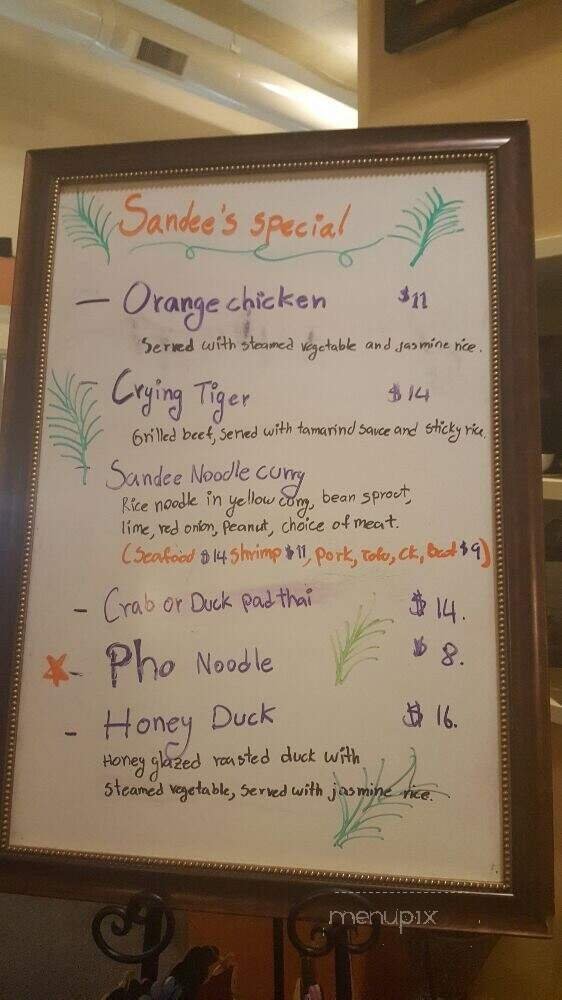 Sandee's special
— Orange chicken $11
Served with steamed vegetable and jasmine rice.
- Crying Tiger $14
Grilled beef, served with tamarind sauce and sticky rice.
- Sandee Noodle curry
Rice noodle in yellow curry, bean sprout,
lime, red onion, peanut, choice of meat.
(Seafood $14 Shrimp $11, pork, Tofu, CK, Beef $9)
- Crab or Duck pad thai $14.
- Pho Noodle $8.
- Honey Duck $16.
Honey glazed roasted duck with
steamed vegetable, served with jasmine rice.
menupix